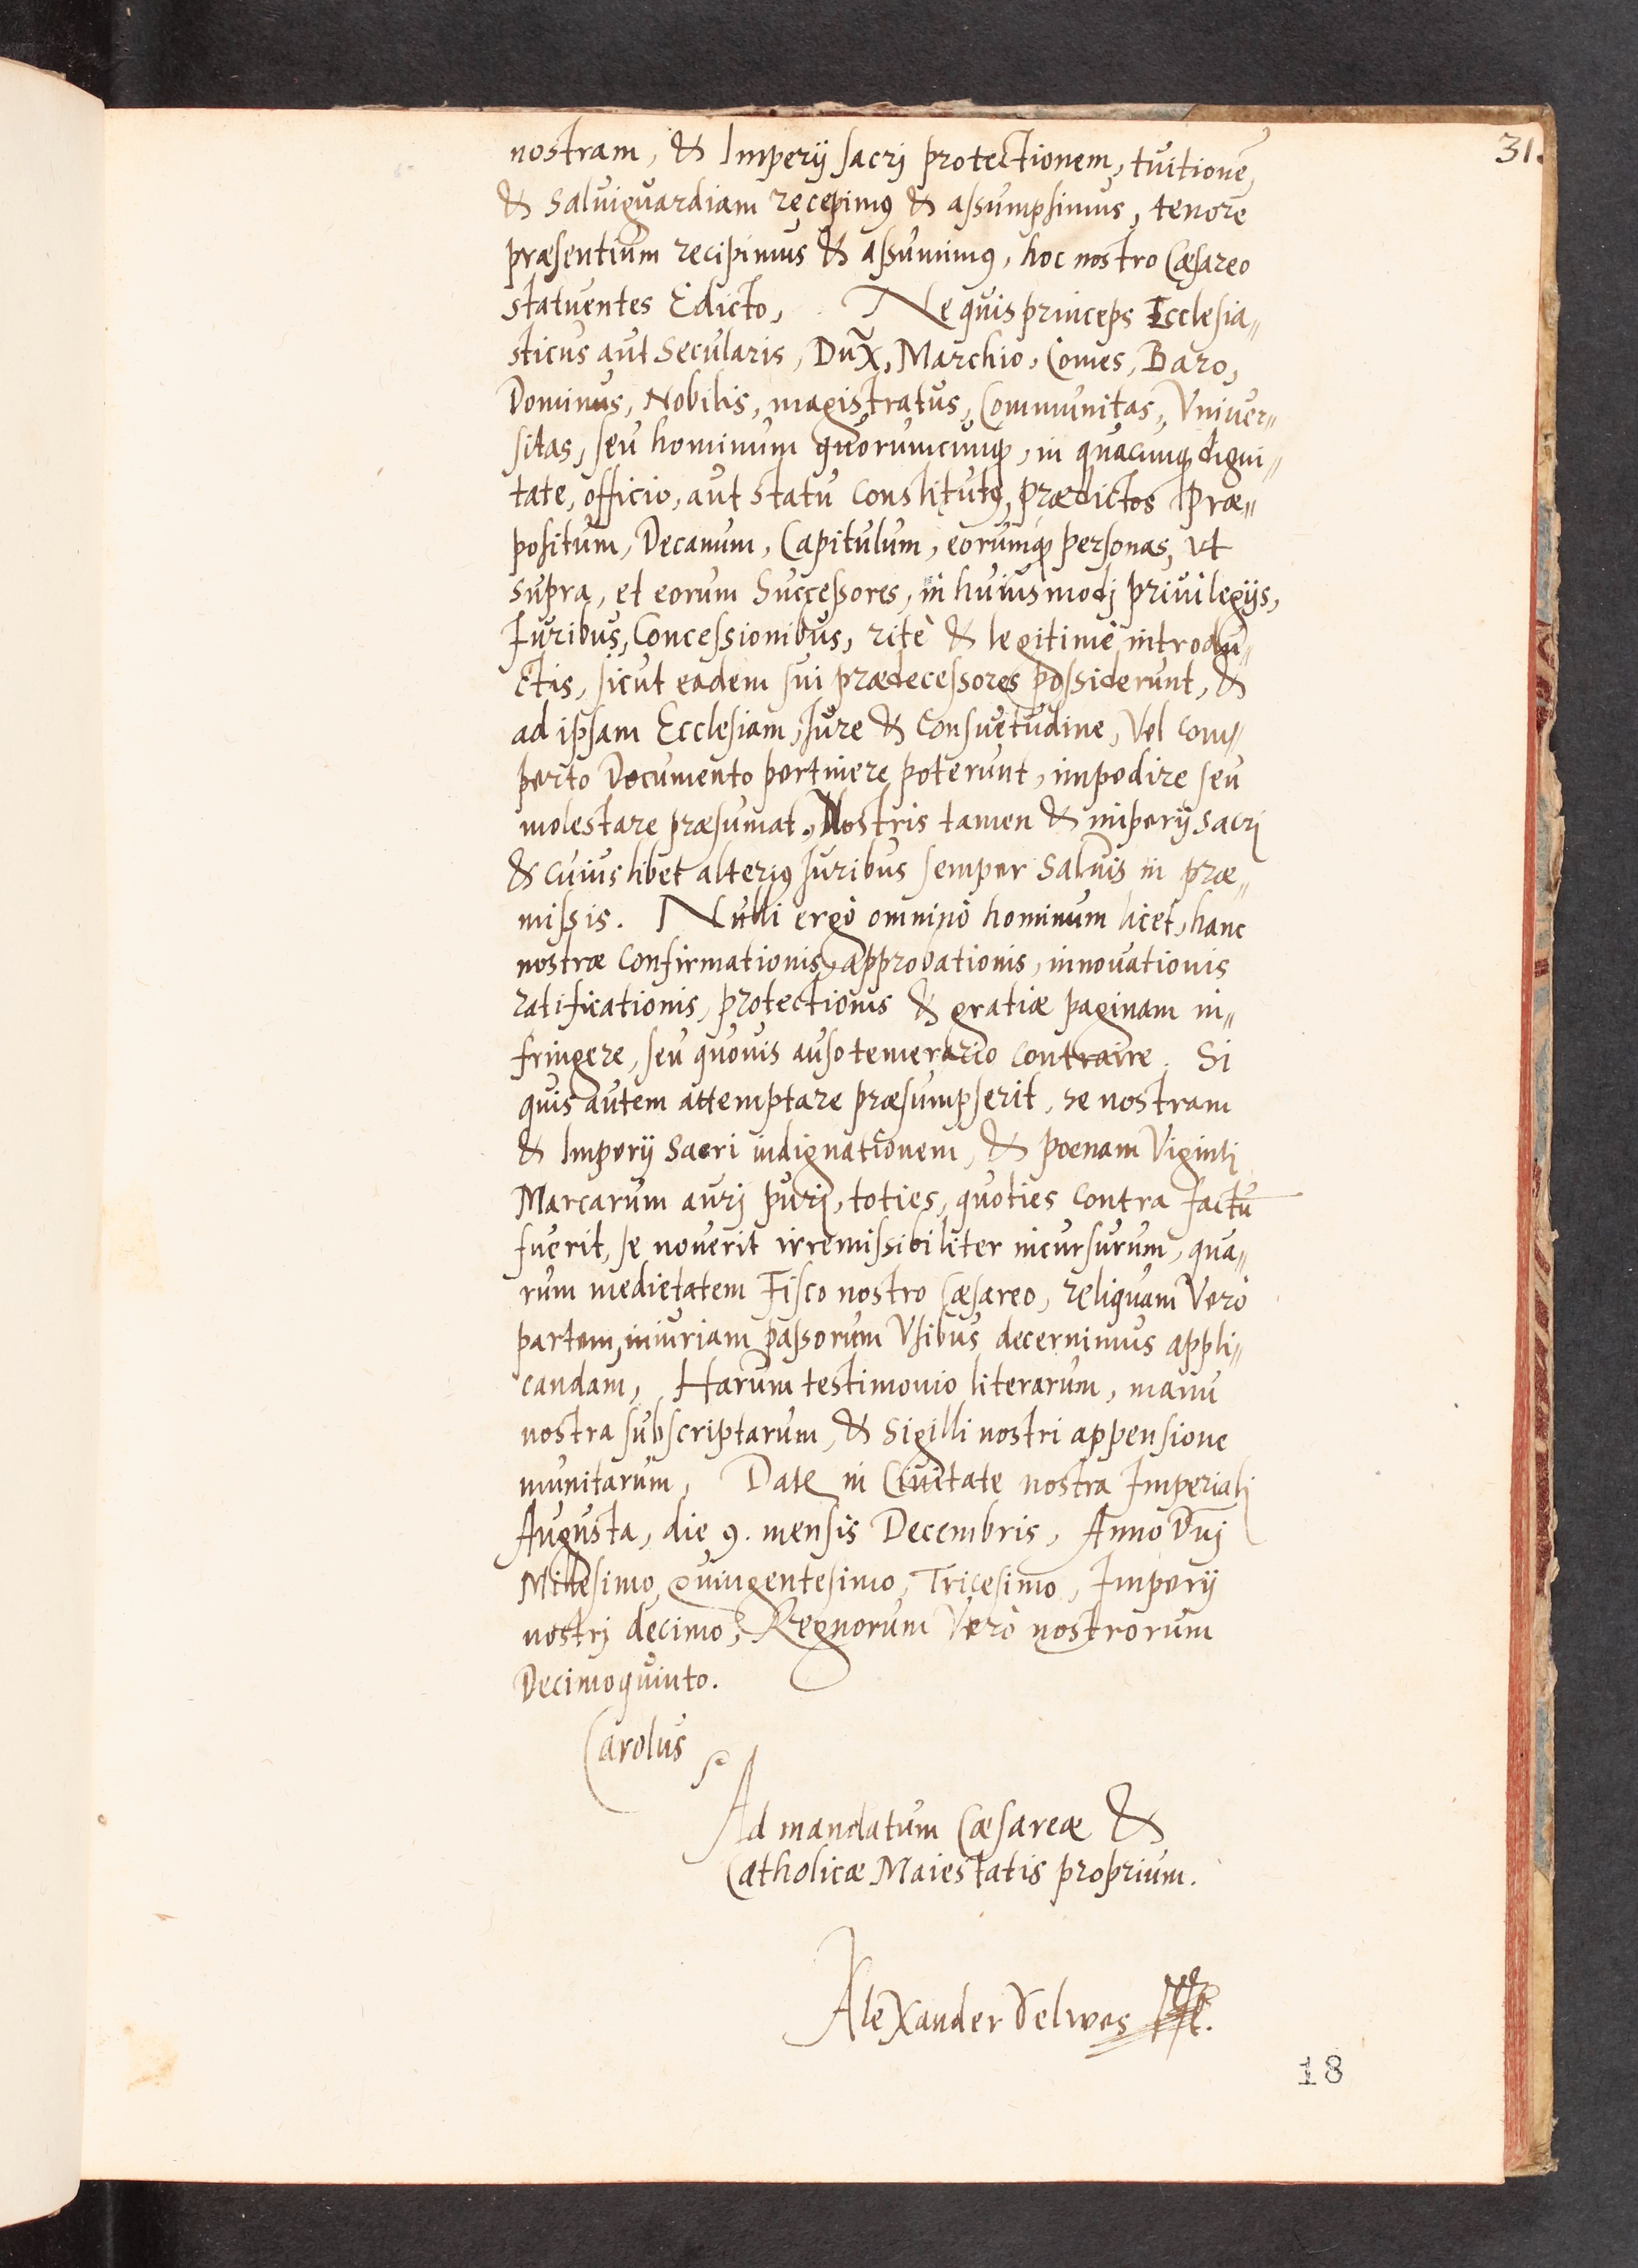 31.
nostram, & Imperij sacrj protectionem, tuitionẽ,
& saluiguardiam recepimꝰ & assumpsimus, tenore
præsentium recipimus & assumimꝰ, hoc nostro Cæsareo
statuentes Edicto, Ne quis princeps Ecclesia„
sticus aut Secularis, Dux, Marchio, Comes, Baro,
Dominus, Nobilis, magistratus, Communitas, Vniver„
sitas, seu hominum quorumcumqꝫ, in quacumqꝫ digni„
tate, officio, aut statu Constitutꝰ, prædictos Præ„
positum, Decanum, Capitulum, eorumqꝫ personas, vt
supra, et eorum Successores, in huiusmodj priuilegijs,
Iuribus, Concessionibus, ritè & legitimè introdu„
ctis, sicut eadem sui prædecessores possiderunt, &
ad ipsam Ecclesiam, Iure & Consuetudine, Vel com„
perto Documento pertinere poterunt, impedire seu
molestare præsumat. Nostris tamen & imperij sacrj
& cuiuslibet alteriꝰ Iuribus semper Saluis in præ„
missis. Nulli ergò omninò hominum licet, hanc
nostræ Confirmationis, approbationis, innouationis
ratificationis, protectionis & gratiæ paginam in„
fringere, seu quouis auso temerario contraire. Si
quis autem attemptare præsumpserit, se nostram
& Imperij Sacri indignationem, & poenam Vigintj
Marcarum aurj purj, toties, quoties contra factũ
fuerit, se nouerit irremissibiliter incursurum, qua„
rum medietatem Fisco nostro Cæsareo, reliquam Verò
partem, iniuriam passorum Vsibus decernimus appli„
candam, Harum testimonio literarum, manu
nostra subscriptarum, & Sigilli nostri appensione
munitarum, Datę in Ciuitate nostra Imperialj
Augusta, die 9. mensis Decembris, Anno Dnj
Millesimo quingentesimo, Tricesimo, Imperij
nostrj decimo, Regnorum Verò nostrorum
Decimoquinto.
Carolus
Ad mandatum Cæsareæ &
Catholicæ Maiestatis proprium.
Alexander Velwes
18